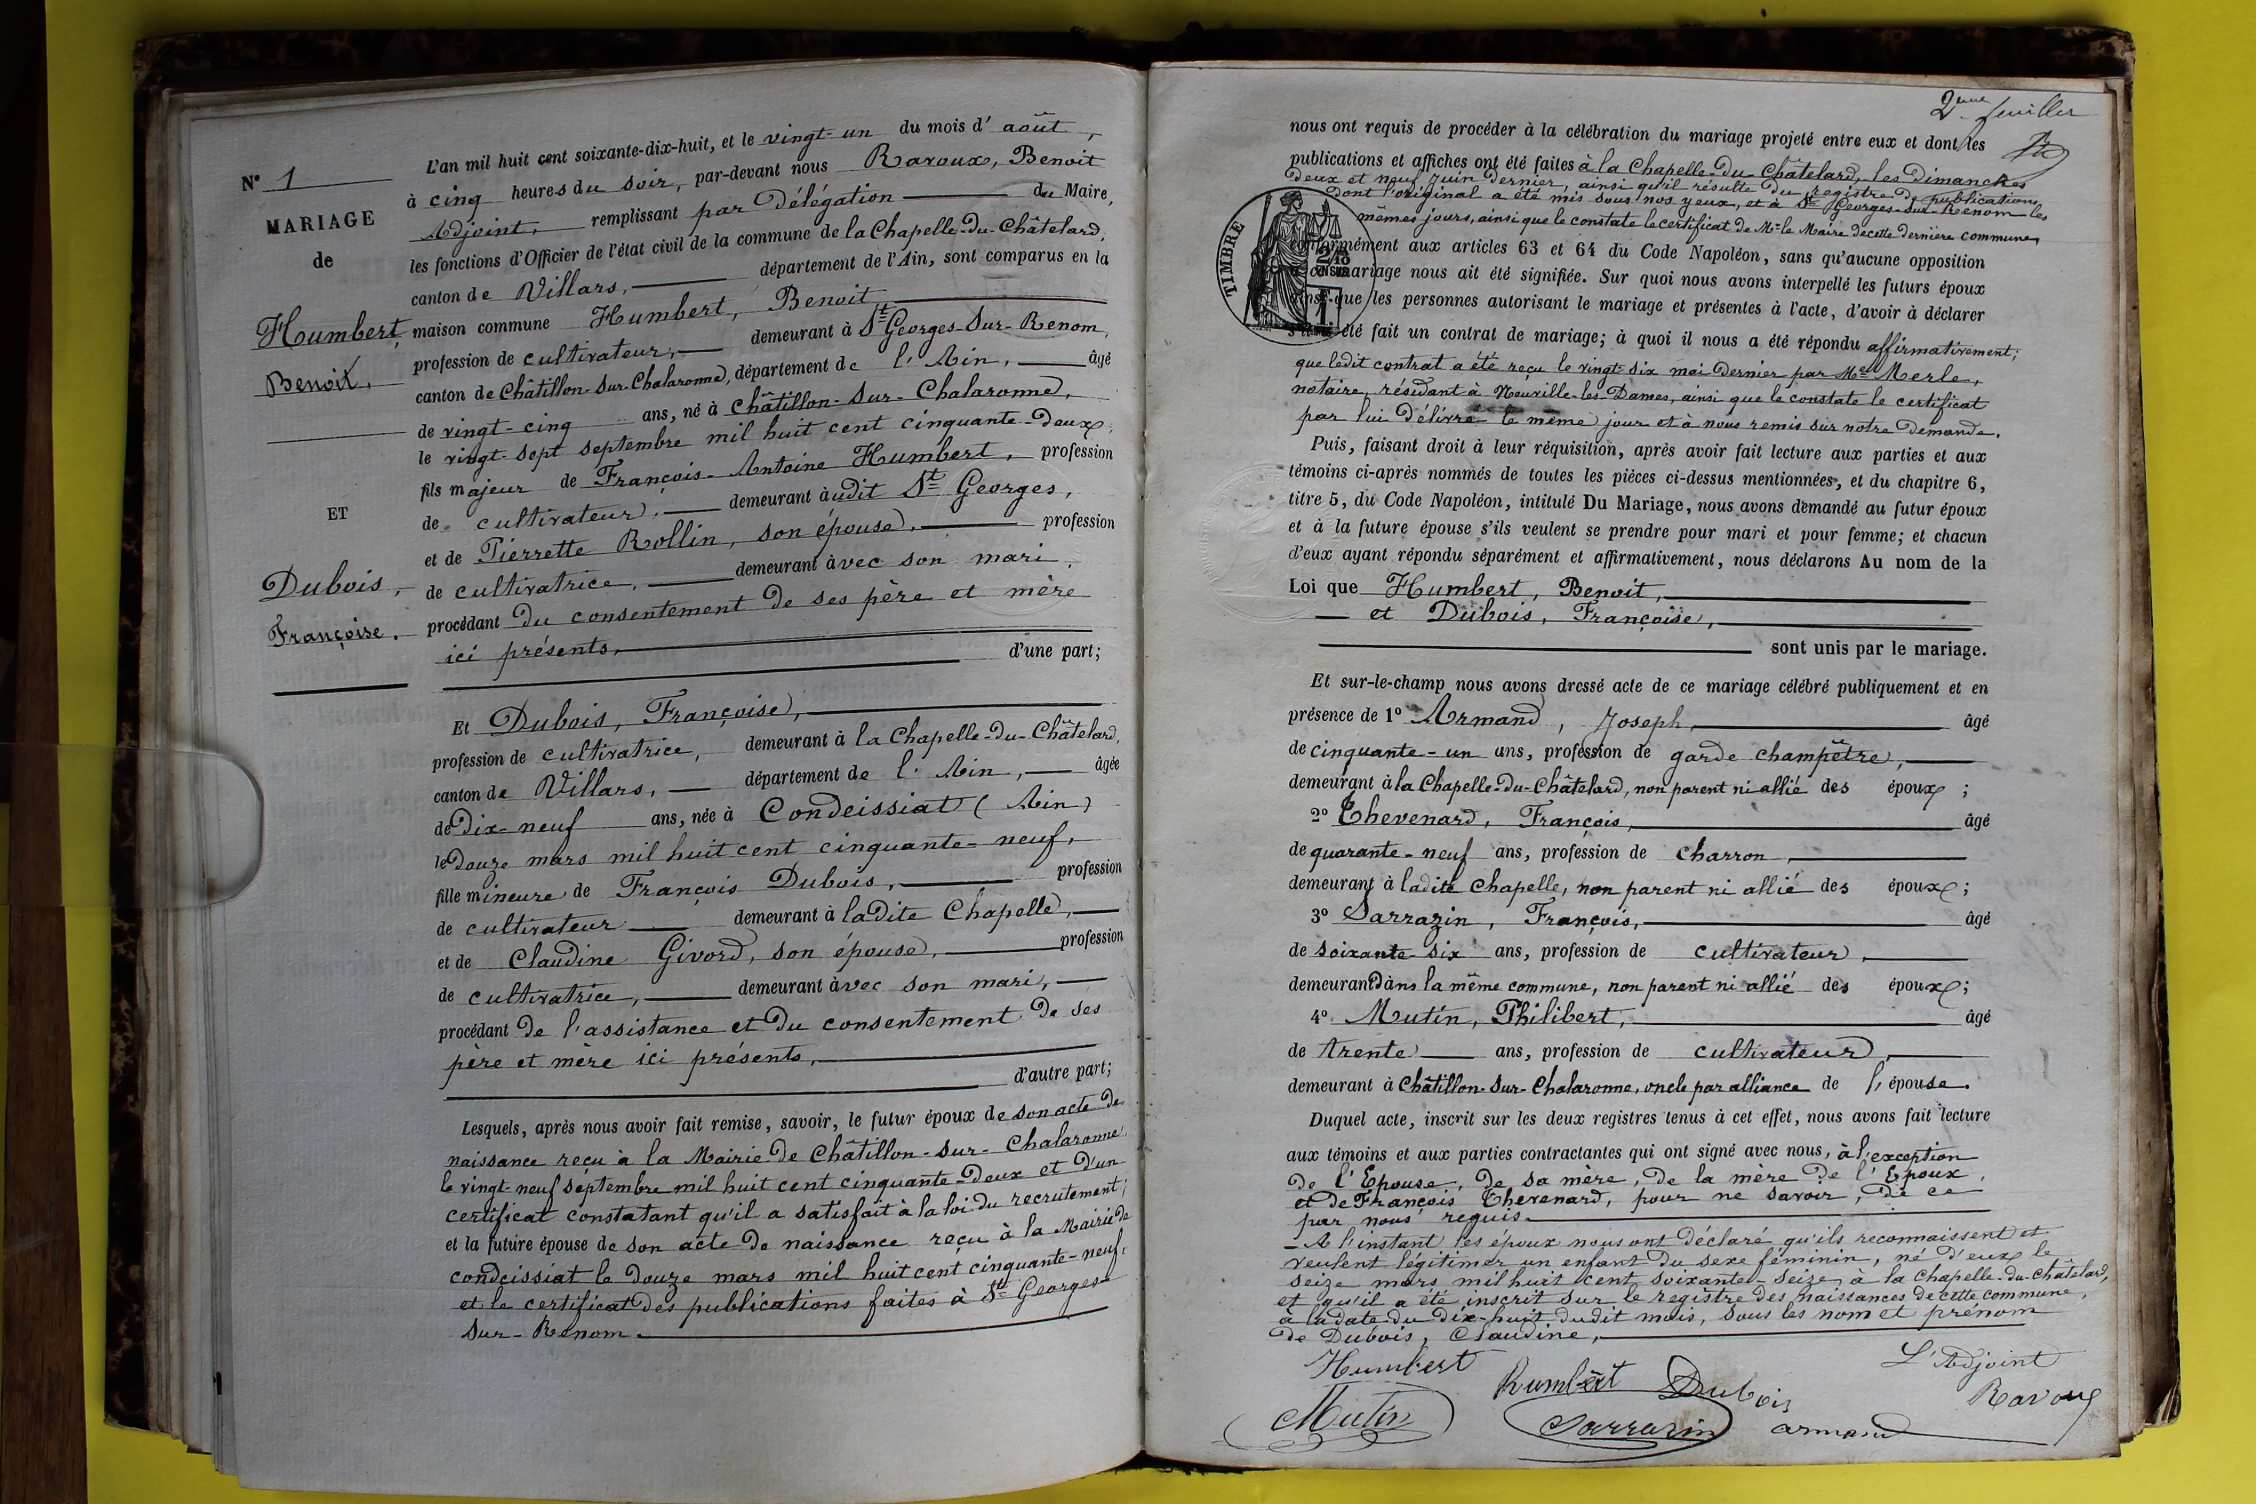 N° 1
MARIAGE
de
Humbert,
Benoit,
ET
Dubois,
Françoise.
L'an mil huit cent soixante-dix-huit, et le vingt-un du mois d'août,
à cinq heures du soir, par-devant nous Ravoux, Benoit
Adjoint, remplissant par délégation du Maire,
les fonctions d'Officier de l'état civil de la commune de la Chapelle-du-Châtelard,
canton de Villars, département de l'Ain, sont comparus en la
maison commune Humbert, Benoit
profession de cultivateur, demeurant à St Georges-Sur-Renom,
canton de Châtillon-sur-Chalaronne, département de l'Ain, âgé
de vingt-cinq ans, né à Châtillon-Sur-Chalaronne,
le vingt-sept septembre mil huit cent cinquante-deux,
fils majeur de François-Antoine Humbert, profession
de cultivateur, demeurant àudit St Georges,
et de Pierrette Rollin, son épouse, profession
de cultivatrice, demeurant àvec son mari,
procédant du consentement de ses père et mère
ici présents, d'une part;
Et Dubois, Françoise,
profession de cultivatrice, demeurant à la Chapelle-du-Châtelard,
canton de Villars, département de l'Ain, âgée
de Dix-neuf ans, née à Condeissiat (Ain)
le Douze mars mil huit cent cinquante-neuf,
fille mineure de François Dubois, profession
de cultivateur demeurant à ladite Chapelle,
et de Claudine Givord, son épouse, profession
de cultivatrice, demeurant àvec son mari,
procédant de l'assistance et du consentement de ses
père et mère ici présents,
d'autre part;
Lesquels, après nous avoir fait remise, savoir, le futur époux de son acte de
naissance reçu à la Mairie de Châtillon-sur-Chalaronne
le vingt-neuf septembre mil huit cent cinquante-deux et d'un
certificat constatant qu'il a satisfait à la loi du recrutement;
et la future épouse de son acte de naissance reçu à la Mairie de
condeissiat le douze mars mil huit cent cinquante-neuf,
et le certificat des publications faites à St Georges-
sur-Renom.
2eme feuillet
nous ont requis de procéder à la célébration du mariage projeté entre eux et dont les
publications et affiches ont été faites à la Chapelle-du-Châtelard, les Dimanches
deux et neuf Juin dernier, ainsi qu'il résulte du registre de publications
dont l'original a été mis sous nos yeux, et à St Georges-sur-Renom les
mêmes jours, ainsi que le constate le certificat de Mr le Maire de cette dernière commune,
TIMBRE
conformément aux articles 63 et 64 du Code Napoléon, sans qu'aucune opposition
à ce mariage nous ait été signifiée. Sur quoi nous avons interpellé les futurs époux
ainsi que les personnes autorisant le mariage et présentes à l'acte, d'avoir à déclarer
s'il a été fait un contrat de mariage; à quoi il nous a été répondu affirmativement;
que ledit contrat a été reçu le vingt-six mai dernier par Me Merle,
notaire, résidant à Neuville-les-Dames, ainsi que le constate le certificat
par lui délivré le même jour et à nous remis sur notre demande.
Puis, faisant droit à leur réquisition, après avoir fait lecture aux parties et aux
témoins ci-après nommés de toutes les pièces ci-dessus mentionnées, et du chapitre 6,
titre 5, du Code Napoléon, intitulé Du Mariage, nous avons demandé au futur époux
et à la future épouse s'ils veulent se prendre pour mari et pour femme; et chacun
d'eux ayant répondu séparément et affirmativement, nous déclarons Au nom de la
Loi que Humbert, Benoit,
et Dubois, Françoise,
sont unis par le mariage.
Et sur-le-champ nous avons dressé acte de ce mariage célébré publiquement et en
présence de 1° Armand, Joseph, âgé
de cinquante-un ans, profession de garde champêtre,
demeurant à la Chapelle-du-Châtelard, non parent ni allié des époux;
2° Thevenard, François, âgé
de quarante-neuf ans, profession de charron,
demeurant à ladite Chapelle, non parent ni allié des époux;
3° Sarrazin, François, âgé
de soixante-six ans, profession de cultivateur,
demeurant dans la même commune, non parent ni allié des époux;
4° Mutin, Philibert, âgé
de trente ans, profession de cultivateur,
demeurant à Châtillon-sur-Chalaronne, oncle par alliance de l'épouse.
Duquel acte, inscrit sur les deux registres tenus à cet effet, nous avons fait lecture
aux témoins et aux parties contractantes qui ont signé avec nous, à l'exception
de l'Epouse, de sa mère, de la mère de l'Epoux,
et de François Thevenard, pour ne savoir, de ce
par nous requis.
- A l'instant les époux nous ont déclaré qu'ils reconnaissent et
veulent légitimer un enfant du sexe féminin, né d'eux le
seize mars mil huit cent soixante-seize, à la Chapelle-du-Châtelard,
et qu'il a été inscrit sur le registre des naissances de cette commune,
à la date du dix-huit dudit mois, sous les nom et prénom
de Dubois, Claudine,
Humbert
Humbert
Dubois
L'Adjoint
Ravoux
Mutin
Sarrazin
armand